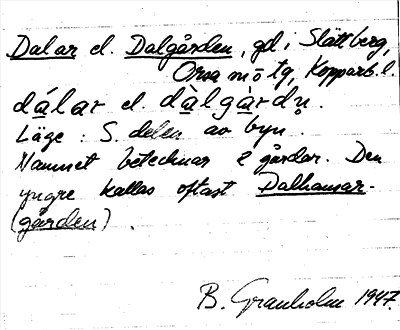 Dalar el. Dalgården, gd i Slättberg,
Orsa m o tg, Kopparb. l.
dálar el. dàlgàrdṇ.
Läge: S. delen av byn.
Namnet betecknar 2 gårdar. Den
yngre kallas oftast Dalhansar-
(gården).
B. Granholm 1947.